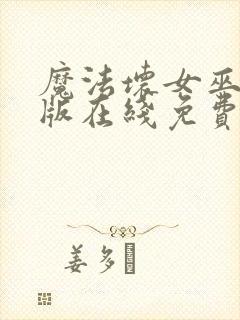 魔法坏女巫
版在綫免費
姜多